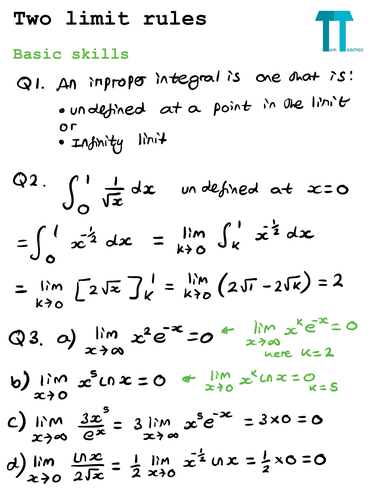 Two limit rules
Tom Teaches
Basic skills
Q1. An improper integral is one that is:
• undefined at a point in the limit
or
• Infinity limit
Q2. ∫₀¹ 1/√x dx undefined at x=0
= ∫₀¹ x^(-1/2) dx = lim k→0 ∫ₖ¹ x^(-1/2) dx
= lim k→0 [2√x]ₖ¹ = lim k→0 (2√1 - 2√k) = 2
Q3. a) lim x→∞ x²e^(-x) = 0 ← lim x→∞ x^k e^(-x) = 0
here k=2
b) lim x→0 x⁵ ln x = 0 ← lim x→0 x^k ln x = 0
k=5
c) lim x→∞ 3x⁵/e^x = 3 lim x→∞ x⁵e^(-x) = 3×0 = 0
d) lim x→0 ln x/2√x = 1/2 lim x→0 x^(-1/2) ln x = 1/2 ×0 = 0